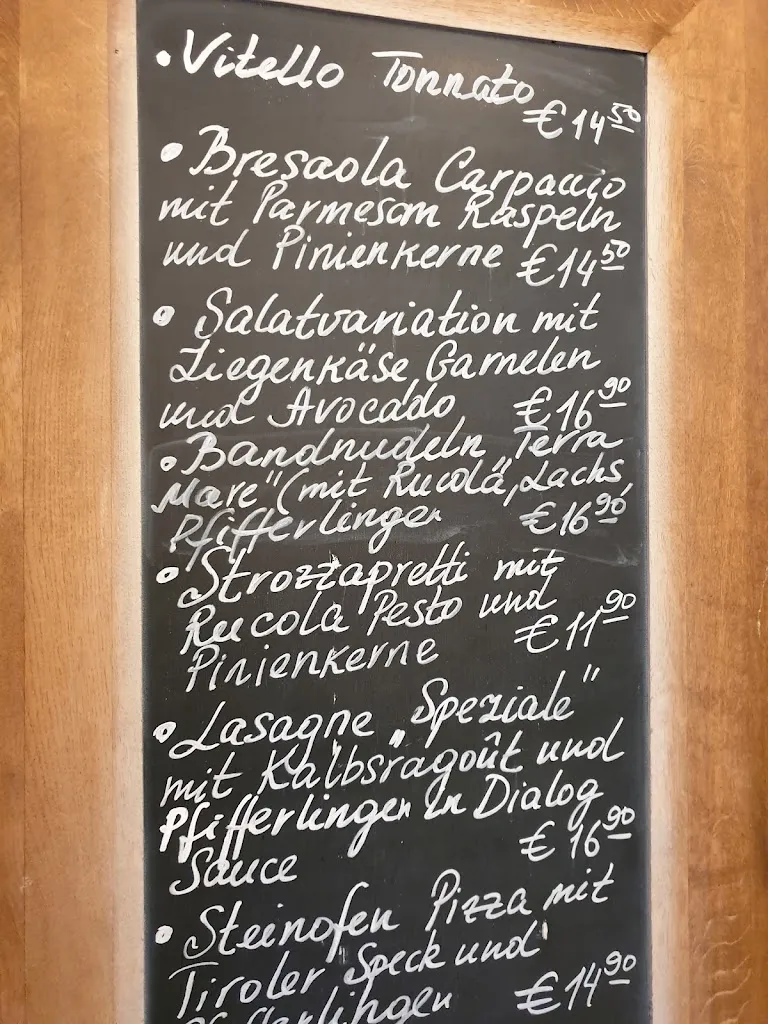 • Vitello Tonnato
€ 14 50
• Bresaola Carpaccio
mit Parmesan Raspeln
und Pinienkerne € 14 50
• Salatvariation mit
Ziegenkäse Garnelen
und Avocado € 16 90
• Bandnudeln "Terra
Mare" (mit Rucola, Lachs,
Pfifferlingen € 16 90
• Strozzapretti mit
Rucola Pesto und
Pinienkerne € 11 90
• Lasagne „Speziale"
mit Kalbsragoût und
Pfifferlingen in Dialog
Sauce € 16 90
• Steinofen Pizza mit
Tiroler Speck und
Pfifferlingen € 14 90